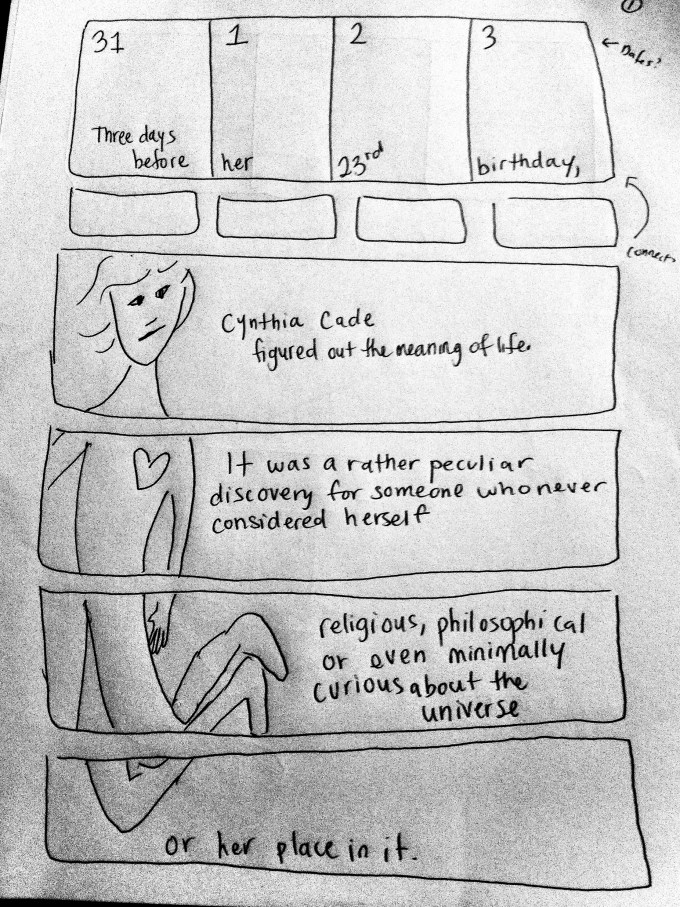 1
31
1
2
3
← Dates?
Three days
before
her
23rd
birthday,
connects
Cynthia Cade
figured out the meaning of life.
It was a rather peculiar
discovery for someone who never
considered herself
religious, philosophical
or even minimally
curious about the
universe
or her place in it.